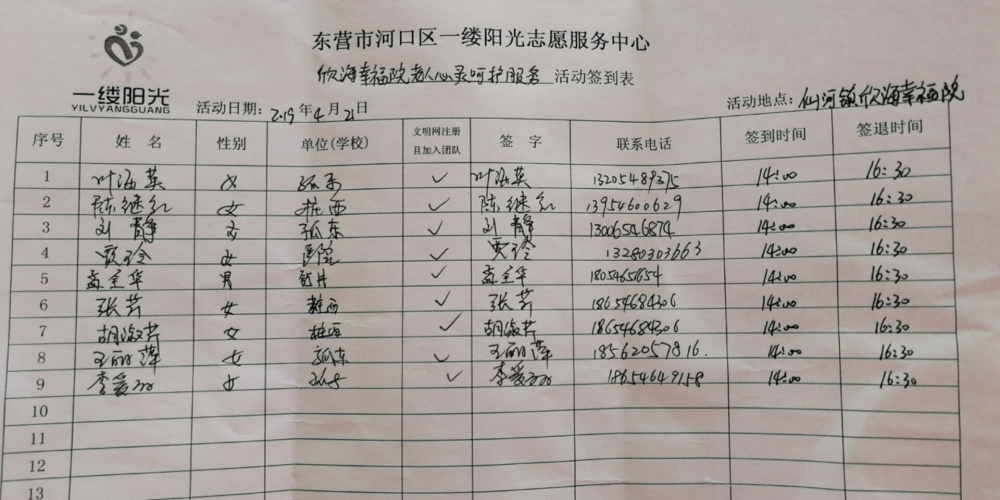 东营市河口区一缕阳光志愿服务中心
欣海幸福院老人心灵呵护服务 活动签到表
一缕阳光
YILVYANGGUANG
活动日期: 2019年4月21日
活动地点: 仙河镇欣海幸福院
序号 姓名 性别 单位(学校) 文明网注册且加入团队 签字 联系电话 签到时间 签退时间
1 叶海英 女 孤东 ✓ 叶海英 13205489375 14:00 16:30
2 陈继红 女 桩西 ✓ 陈继红 13954600629 14:00 16:30
3 刘静 女 孤东 ✓ 刘静 13006546874 14:00 16:30
4 贾玲 女 医院 ✓ 贾玲 13280303663 14:00 16:30
5 孟全华 男 ✓ 孟全华 1805465654 14:00 16:30
6 张芹 女 桩西 ✓ 张芹 18654684306 14:00 16:30
7 胡淑芹 女 桩西 ✓ 胡淑芹 18654684306 14:00 16:30
8 王丽萍 女 孤东 ✓ 王丽萍 18562057816. 14:00 16:30
9 李爱 女 ✓ 李爱 18654649158 14:00 16:30
10
11
12
13